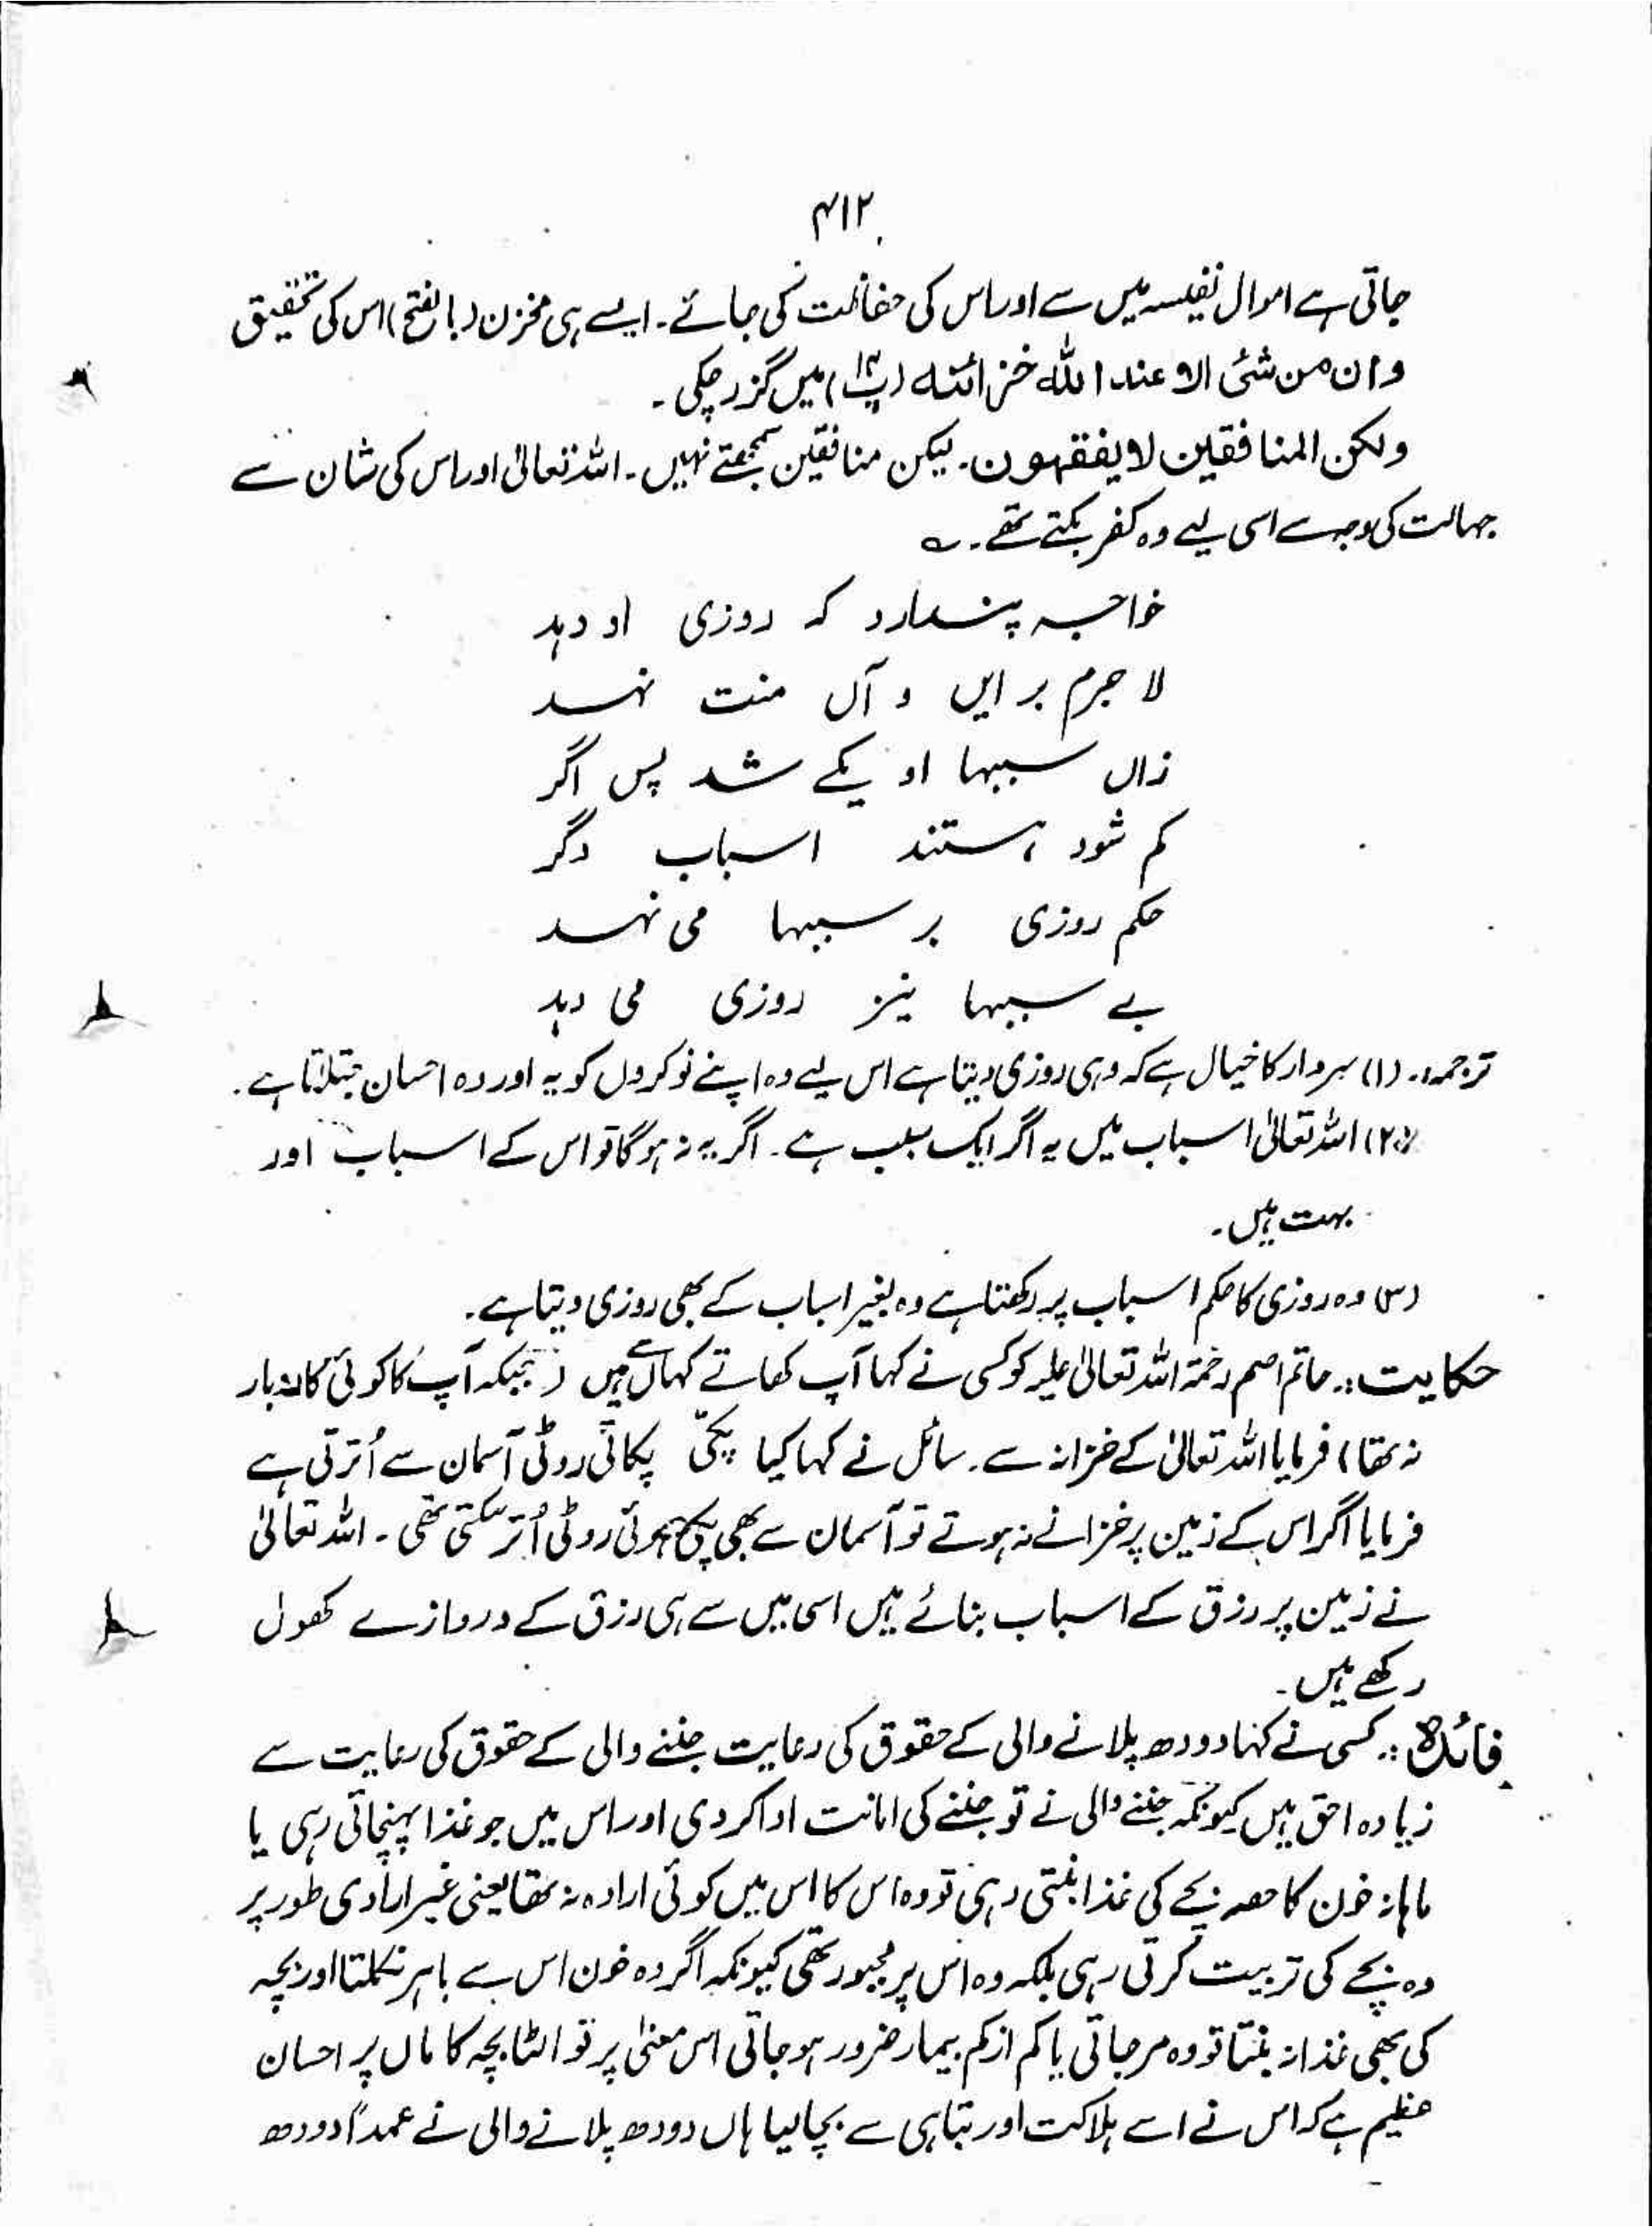 ۴۱۲
جاتی ہے اموال نفیسہ میں سے اور اس کی حفاظت کی جائے۔ ایسے ہی مخزن (بالفتح) اس کی تحقیق
وان من شئی الا عند اللہ خزائنہ (پ۱۴) میں گزر چکی۔
ولکن المنافقین لا یفقہون۔ لیکن منافقین سمجھتے نہیں۔ اللہ تعالیٰ اور اس کی شان سے
جہالت کی وجہ سے اسی لیے وہ کفر بکتے تھے۔ ؎
خواجہ پندارد کہ روزی او دہد
لا جرم بر ایں و آں منت نہد
زاں سببہا او یکے شد پس اگر
کم شود ہستند اسباب دگر
حکم روزی بر سببہا می نہد
بے سببہا نیز روزی می دہد
ترجمہ:۔ (۱) سردار کا خیال ہے کہ وہی روزی دیتا ہے اس لیے وہ اپنے نوکروں کو یہ اور وہ احسان جتلاتا ہے۔
(۲) اللہ تعالیٰ اسباب میں یہ اگر ایک سبب ہے۔ اگر یہ نہ ہوگا تو اس کے اسباب اور
بہت ہیں۔
(۳) وہ روزی کا حکم اسباب پر رکھتا ہے وہ بغیر اسباب کے بھی روزی دیتا ہے۔
حکایت:۔ حاتم اصم رحمۃ اللہ تعالیٰ علیہ کو کسی نے کہا آپ کھاتے کہاں سے ہیں (جبکہ آپ کا کوئی کاروبار
نہ تھا) فرمایا اللہ تعالیٰ کے خزانہ سے۔ سائل نے کہا کیا پکی پکائی روٹی آسمان سے اُترتی ہے
فرمایا اگر اس کے زمین پر خزانے نہ ہوتے تو آسمان سے بھی پکی ہوئی روٹی اُتر سکتی تھی۔ اللہ تعالیٰ
نے زمین پر رزق کے اسباب بنائے ہیں اسی میں سے ہی رزق کے دروازے کھول
رکھے ہیں۔
فائدہ:۔ کسی نے کہا دودھ پلانے والی کے حقوق کی رعایت جننے والی کے حقوق کی رعایت سے
زیادہ احق ہیں کیونکہ جننے والی نے تو جننے کی امانت ادا کر دی اور اس میں جو غذا پہنچاتی رہی یا
ماہانہ خون کا حصہ بچے کی غذا بنتی رہی تو وہ اس کا اس میں کوئی ارادہ نہ تھا یعنی غیر ارادی طور پر
وہ بچے کی تربیت کرتی رہی بلکہ وہ اس پر مجبور تھی کیونکہ اگر وہ خون اس سے باہر نکلتا اور بچہ
کی بھی غذا نہ بنتا تو وہ مر جاتی یا کم از کم بیمار ضرور ہو جاتی اس معنیٰ پر تو الٹا بچہ کا ماں پر احسان
عظیم ہے کہ اس نے اسے ہلاکت اور تباہی سے بچا لیا ہاں دودھ پلانے والی نے عمداً دودھ